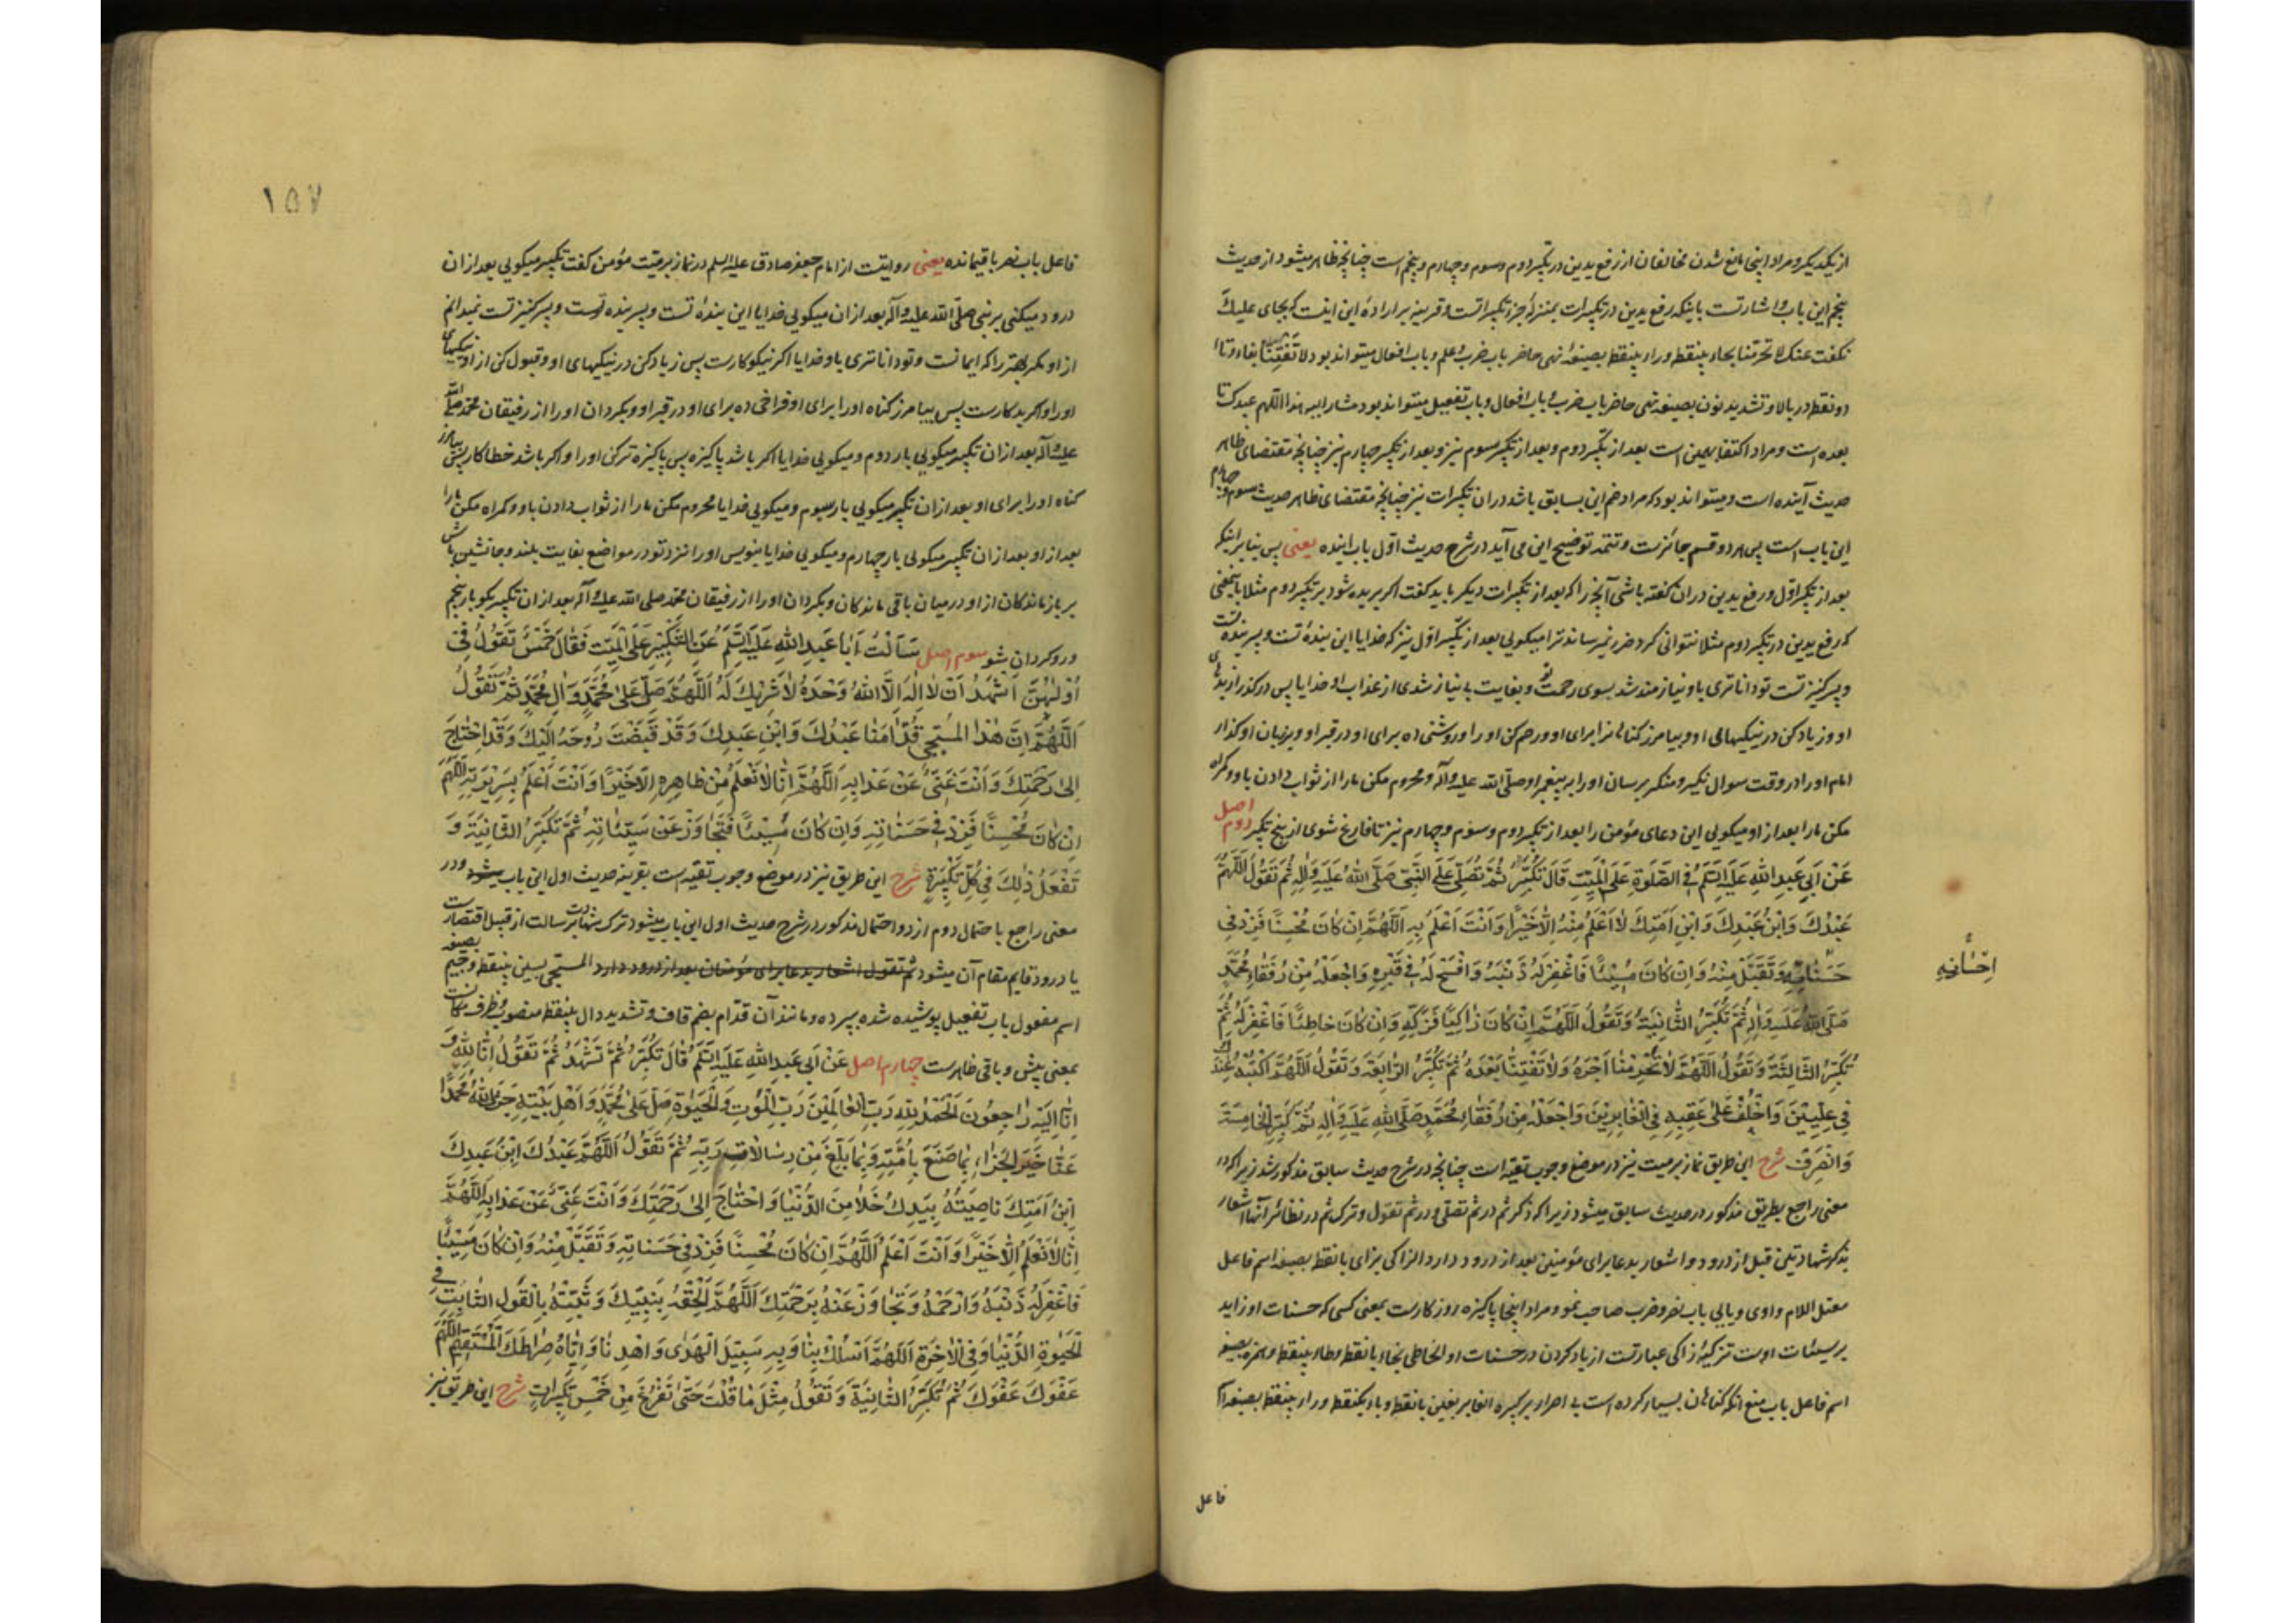 از یکدیگر و مراد اینجا مانع شدن مخالفان از رفع یدین در تکبیر دوم و سوم و چهارم و پنجم است چنانچه ظاهر میشود از حدیث
پنجم این باب و اشارتست باینکه رفع یدین در تکبیرات بمنزلهٔ جزو تکبیراتست و قرینه بر ارادهٔ این اینست که بجای علیک
نگفت عنک لا تحرمنا بحاء بینقطه و راء بینقطه بصیغهٔ نهی حاضر باب ضرب و علم و باب افعال میتواند بود ولا تفتنّا بفاء و تاء
دو نقطه در بالا و تشدید نون بصیغهٔ نهی حاضر باب ضرب و باب افعال و باب تفعیل میتواند بود مشار الیه هذا اللهم عبدک تا
بعده است و مراد اکتفا بهمین است بعد از تکبیر دوم و بعد از تکبیر سوم نیز و بعد از تکبیر چهارم نیز چنانچه مقتضای ظاهر
حدیث آینده است و میتواند بود که مراد ضم این بسابق باشد در ان تکبیرات نیز چنانچه مقتضای ظاهر حدیث سوم و چهارم
این باب است پس هر دو قسم جائزست و تتمه توضیح این می آید در شرح حدیث اول باب اینده یعنی پس بنا بر اینکه
بعد از تکبیر اول و رفع یدین در ان گفته باشی آنچه را که بعد از تکبیرات دیگر باید گفت اگر بریده شود بر تو تکبیر دوم مثلا باینمعنی
که رفع یدین در تکبیر دوم مثلا نتوانی کرد ضرر نمیرساند ترا میکوئی بعد از تکبیر اول نیز که خدایا این بندهٔ تست و پسر بندهٔ تست
و پسر کنیز تست تو داناتری باو نیازمند شد بسوی رحمت تو و بغایت بی نیاز شدی از عذاب او خدایا پس درگذر از بدیهای
او و زیاد کن در نیکیهای او و بیامرز گناهانرا برای او و رحم کن او را و روشنی ده برای او در قبر او و بر زبان او گذار
امام او را در وقت سوال نکیر و منکر برسان او را بر پیغمبر او صلّی الله علیه وآله و محروم مکن ما را از ثواب دادن باو و گمراه
مکن ما را بعد از او میکوئی این دعای مؤمن را بعد از تکبیر دوم و سوم و چهارم نیز تا فارغ شوی از پنج تکبیر دوم اصل
عَنْ اَبِي عَبدِ اللهِ عَلَيهِ السَّلَمُ فِي الصَّلوةِ عَلَى الْمَيِّتِ قَالَ تُكَبِّرُ ثُمَّ تُصَلِّي عَلَى النَّبِيِّ صَلَّى اللهُ عَلَيهِ وَالِهِ ثُمَّ تَقُولُ اَللّٰهُمَّ
عَبْدُكَ وَابْنُ عَبْدِكَ وَابْنُ اَمَتِكَ لَا اَعْلَمُ مِنْهُ اِلَّا خَيْرًا وَاَنْتَ اَعْلَمُ بِهِ اَللّٰهُمَّ اِنْ كَانَ مُحْسِنًا فَزِدْ فِي
حَسَنَاتِهِ وَتَقَبَّلْ مِنْهُ وَاِنْ كَانَ مُسِيْئًا فَاغْفِرْ لَهُ ذَنْبَهُ وَافْسَحْ لَهُ فِي قَبْرِهِ وَاجْعَلْهُ مِنْ رُفَقَاءِ مُحَمَّدٍ
اِحْسَانِهِ
صَلَّى اللهُ عَلَيهِ وَالِهِ ثُمَّ تُكَبِّرُ الثَّانِيَةَ وَتَقُولُ اَللّٰهُمَّ اِنْ كَانَ زَاكِيًا فَزَكِّهِ وَاِنْ كَانَ خَاطِئًا فَاغْفِرْ لَهُ ثُمَّ
تُكَبِّرُ الثَّالِثَةَ وَتَقُولُ اَللّٰهُمَّ لَا تَحْرِمْنَا اَجْرَهُ وَلَا تَفْتِنَّا بَعْدَهُ ثُمَّ تُكَبِّرُ الرَّابِعَةَ وَتَقُولُ اَللّٰهُمَّ اكْتُبْهُ عِنْدَكَ
فِي عِلِّيِّيْنَ وَاخْلُفْ عَلَى عَقِبِهِ فِي الْغَابِرِيْنَ وَاجْعَلْهُ مِنْ رُفَقَاءِ مُحَمَّدٍ صَلَّى اللهِ عَلَيهِ وَالِهِ ثُمَّ كَبِّرِ الْخَامِسَةَ
وَانْصَرِفْ شرح این طریق نماز بر میت نیز در موضع وجوب تقیه است چنانچه در شرح حدیث سابق مذکور شد زیرا که در
معنی راجع بطریق مذکور در حدیث سابق میشود زیرا که ذکر ثم در ثم تصلی و در ثم تقول و ترک ثم در نظائر آنها اشعار
بذکر شهادتین قبل از درود و اشعار بدعا برای مؤمنین بعد از درود دارد الزاکی بزای بانقطه بصیغهٔ اسم فاعل
معتل اللام واوی و یایی باب نصر و ضرب صاحب نمو و مراد اینجا پاکیزه روزکارست بمعنی کسی که حسنات او زاید
بر سیئات اوست تزکیهٔ زاکی عبارتست از زیاد کردن در حسنات او الخاطی بخاء بانقطه و طاء بینقطه و همزه بصیغهٔ
اسم فاعل باب منع انکه گناهان بسیار کرده است بی اصرار بر کبیره الغابر بغین بانقطه و باء یکنقطه و راء بینقطه بصیغهٔ اسم
فاعل
١٥٧
فاعل باب نصر باقیمانده یعنی روایتست از امام جعفر صادق علیه السلم در نماز بر میت مؤمن گفت تکبیر میکوئی بعد از ان
درود میکنی بر نبی صلّی الله علیه وآله بعد از ان میکوئی خدایا این بندهٔ تست و پسر بندهٔ تست و پسر کنیز تست نمیدانم
از او مگر بهتر را که ایمانست و تو داناتری باو خدایا اگر نیکوکارست پس زیاد کن در نیکیهای او و قبول کن از او نیکیهای
او را و اگر بدکارست پس بیامرز گناه او را برای او و فراخی ده برای او در قبر او و بگردان او را از رفیقان محمد صلی الله
علیه وآله بعد از ان تکبیر میکوئی بار دوم و میکوئی خدایا اگر باشد پاکیزه پس پاکیزه تر کن او را و اگر باشد خطاکار پس بیامرز
گناه او را برای او بعد از ان تکبیر میکوئی بار سیوم و میکوئی خدایا محروم مکن ما را از ثواب دادن باو و گمراه مکن ما را
بعد از او بعد از ان تکبیر میکوئی بار چهارم و میکوئی خدایا بنویس او را نزد تو در مواضع بغایت بلند و جانشین باش
بر بازماندگان از او در میان باقی ماندگان و بگردان او را از رفیقان محمد صلی الله علیه وآله بعد از ان تکبیر بگو بار پنجم
و رو گردان شو سوم اصل سَاَلْتُ اَبَا عَبدِ اللهِ عَلَيهِ السَّلَمُ عَنِ التَّكْبِيْرِ عَلَى الْمَيِّتِ فَقَالَ خَمْسٌ تَقُولُ فِي
اُوْلٰهُنَّ اَشْهَدُ اَنْ لَا اِلٰهَ اِلَّا اللهُ وَحْدَهُ لَا شَرِيْكَ لَهُ اَللّٰهُمَّ صَلِّ عَلَى مُحَمَّدٍ وَاٰلِ مُحَمَّدٍ ثُمَّ تَقُولُ
اَللّٰهُمَّ اِنَّ هٰذَا الْمُسَجّٰى قُدَّامَنَا عَبْدُكَ وَابْنُ عَبْدِكَ وَقَدْ قَبَضْتَ رُوحَهُ اِلَيْكَ وَقَدِ احْتَاجَ
اِلَى رَحْمَتِكَ وَاَنْتَ غَنِيٌّ عَنْ عَذَابِهِ اَللّٰهُمَّ اِنَّا لَا نَعْلَمُ مِنْ ظَاهِرِهِ اِلَّا خَيْرًا وَاَنْتَ اَعْلَمُ بِسَرِيْرَتِهِ اَللّٰهُمَّ
اِنْ كَانَ مُحْسِنًا فَزِدْ فِي حَسَنَاتِهِ وَاِنْ كَانَ مُسِيْئًا فَتَجَاوَزْ عَنْ سَيِّئَاتِهِ ثُمَّ تُكَبِّرُ الثَّانِيَةَ وَ
تَفْعَلُ ذٰلِكَ فِي كُلِّ تَكْبِيْرَةٍ شرح این طریق نیز در موضع وجوب تقیه است بقرینهٔ حدیث اول این باب میشود و در
معنی راجع باحتمال دوم از دو احتمال مذکور در شرح حدیث اول این باب میشود ترک شهادت رسالت از قبیل اقتصارست
یا درود قایم مقام آن میشود ثم تقول اشعار بدعا برای مؤمنان بعد از درود دارد المسجّی بسین بینقطه و جیم بصیغهٔ
اسم مفعول باب تفعیل پوشیده شده بپرده و مانند آن قدّام بضم قاف و تشدید دال بینقطه منصوب و ظرف مکانست
بمعنی پیش و باقی ظاهرست چهارم اصل عَنْ اَبِي عَبدِ اللهِ عَلَيهِ السَّلَمُ قَالَ تُكَبِّرُ ثُمَّ تَشَهَّدُ ثُمَّ تَقُولُ اِنَّا لِلّٰهِ وَ
اِنَّا اِلَيْهِ رَاجِعُونَ اَلْحَمْدُ لِلّٰهِ رَبِّ الْعَالَمِيْنَ رَبِّ الْمَوْتِ وَالْحَيٰوةِ صَلِّ عَلَى مُحَمَّدٍ وَاَهْلِ بَيْتِهِ جَزَى اللهُ مُحَمَّدًا
عَنَّا خَيْرَ الْجَزَاءِ بِمَا صَنَعَ بِاُمَّتِهِ وَبِمَا بَلَّغَ مِنْ رِسَالَاتِ رَبِّهِ ثُمَّ تَقُولُ اَللّٰهُمَّ عَبْدُكَ ابْنُ عَبْدِكَ
ابْنُ اَمَتِكَ نَاصِيَتُهُ بِيَدِكَ خَلَا مِنَ الدُّنْيَا وَاحْتَاجَ اِلَى رَحْمَتِكَ وَاَنْتَ غَنِيٌّ عَنْ عَذَابِهِ اَللّٰهُمَّ
اِنَّا لَا نَعْلَمُ اِلَّا خَيْرًا وَاَنْتَ اَعْلَمُ اَللّٰهُمَّ اِنْ كَانَ مُحْسِنًا فَزِدْ فِي حَسَنَاتِهِ وَتَقَبَّلْ مِنْهُ وَاِنْ كَانَ مُسِيْئًا
فَاغْفِرْ لَهُ ذَنْبَهُ وَارْحَمْهُ وَتَجَاوَزْ عَنْهُ بِرَحْمَتِكَ اَللّٰهُمَّ اَلْحِقْهُ بِنَبِيِّكَ وَثَبِّتْهُ بِالْقَوْلِ الثَّابِتِ فِي
الْحَيٰوةِ الدُّنْيَا وَفِي الْاٰخِرَةِ اَللّٰهُمَّ اسْلُكْ بِنَا وَبِهِ سَبِيْلَ الْهُدَى وَاهْدِنَا وَاِيَّاهُ صِرَاطَكَ الْمُسْتَقِيْمَ اَللّٰهُمَّ
عَفْوَكَ عَفْوَكَ ثُمَّ تُكَبِّرُ الثَّانِيَةَ وَتَقُولُ مِثْلَ مَا قُلْتَ حَتّٰى تَفْرُغَ مِنْ خَمْسِ تَكْبِيْرَاتٍ شرح این طریق نیز